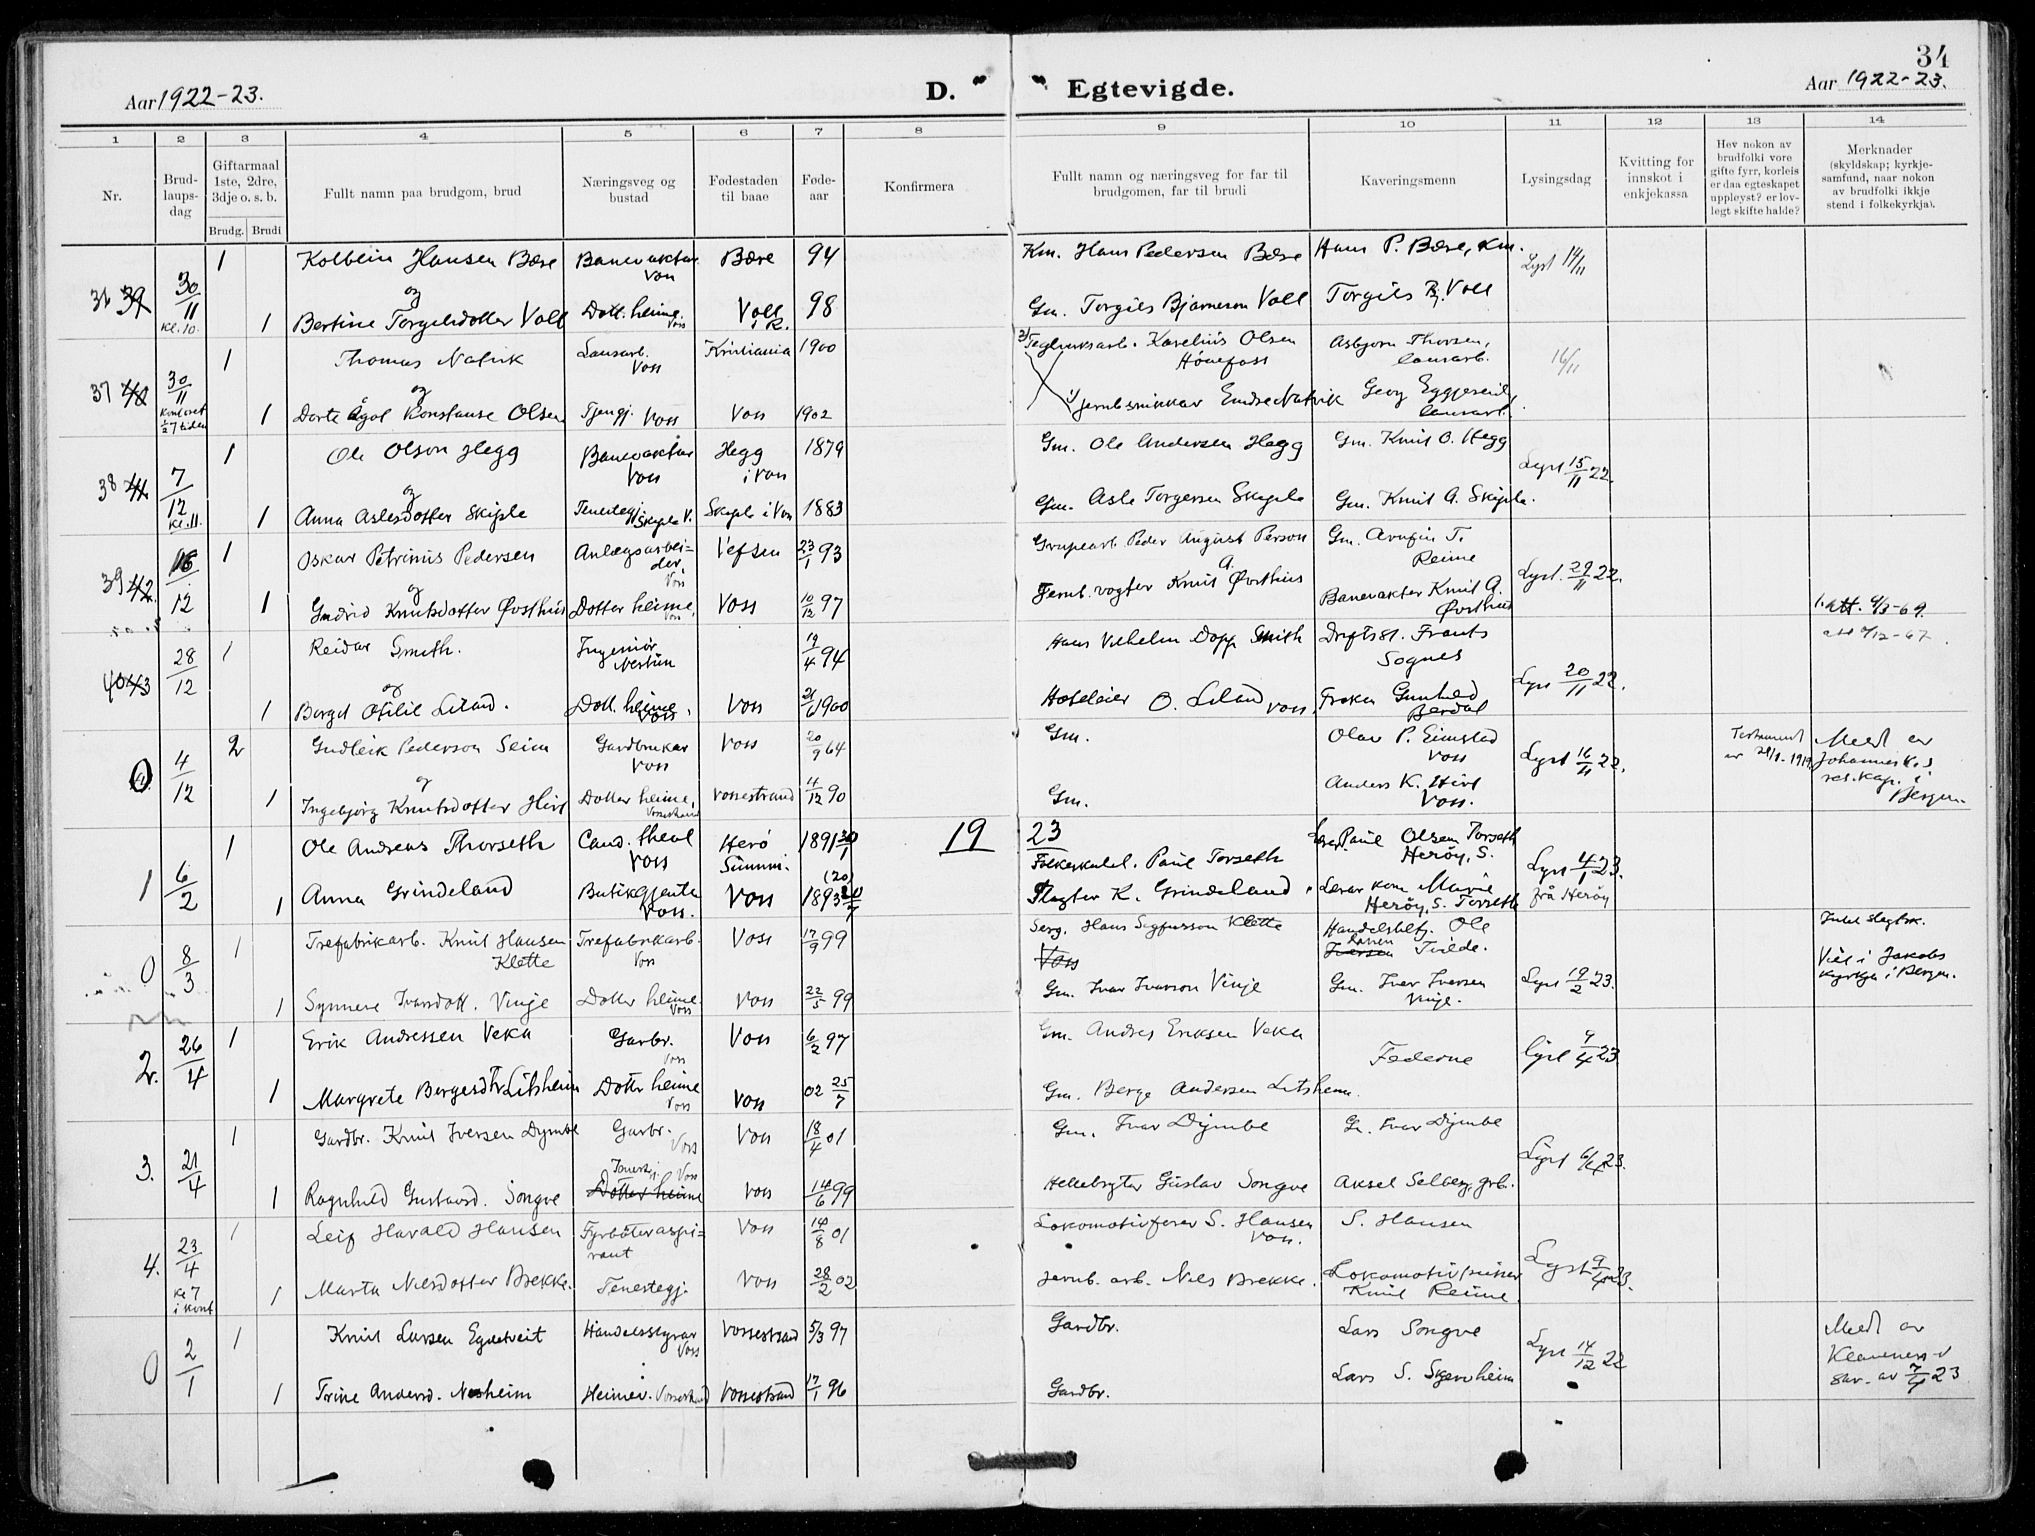 34
Aar 1922-23.
D.
Egtevigde.
Aar 1922-23.
1 2 3 4 5 6 7 8 9 10 11 12 13 14
Nr.
Brud-
laups-
dag
Giftarmaal
1ste, 2dre,
3dje o. s. b.
Brudg. Brudi
Fullt namn paa brudgom, brud
Næringsveg og
bustad
Fødestaden
til baae
Føde-
aar
Konfirmera
Fullt namn og næringsveg for far til
brudgomen, far til brudi
Kaveringsmenn
Lysingsdag
Kvitting for
innskot i
enkjekassa
Hev nokon av
brudfolki vore
gifte fyrr, korleis
er daa egteskapet
uppløyst? er lov-
legt skifte halde?
Merknader
(skyldskap; kyrkje-
samfund, naar nokon
av brudfolki ikkje
stend i folkekyrkja).
36 39 30/11 kl. 10. 1 Kolbein Hansen Børe Banevaktar Voss Børe 94 Km. Hans Pedersen Børe Hans P. Børe, Km. Lyst 14/11
og
1 Bertine Torgilsdotter Voll Dott. heime. Voss Voll i R. 98 Gm. Torgils Bjarneson Voll Torgils B. Voll
37 40 30/11 Kontoret 1/2 7 tiden 1 Thomas Natvik Lausarb. Voss Kristiania 1900 2) Teglverksarb. Karelius Olsen Hønefoss Asbjørn Thorsen, lausarb. 16/11
og
1 Dorte Ågot Konstanse Olsen Tjengj. Voss Voss 1902 1) Jernb.snikkar Endre Natvik Georg Eggjereid, lausarb.
38 41 7/12 kl. 11. 1 Ole Olson Hegg Banevaktar Voss Hegg i Voss 1879 Gm. Ole Andersen Hegg Gm. Knut O. Hegg Lyst 15/11 22.
og
1 Anna Aslesdotter Skiple Tenestegj. Skiple V. Skiple i Voss 1883 Gm. Asle Torgersen Skiple Gm. Knut A. Skiple.
39 42. 16/12 1 Oskar Petrinus Pedersen Anlægsarbei=der, Voss Vefsen 23/1 93 Grupearb. Peder August Person Gm. Arnfin T. Reime Lyst. 29/11 22.
og
1 Gudrid Knutsdotter Øvsthus Dotter heime, Voss Voss 10/12 97 Jernb. vogter Knut A. Øvsthus Banevakter Knut A. Øvsthus 1. att. 4/3-69.
40 43 28/12 1 Reidar Smith. Ingeniør Nestun 94 Hans Vilhelm Dopp Smith Driftsst. Frants Sognes Lyst 20/11 22.
og
1 Borgil Otilie Liland. Dott. heime, Voss Voss 21/6 1900 Hoteleier O. Liland Voss. Frøken Gunhild Berdal
0 4/12 2 Gudleik Pederson Seim Gardbrukar Voss Voss 20/9 64 Gm. Olav P. Eimstad Voss Lyst 16/11 22. Testament Meld. av Johanneskl.s res. kap. i Bergen.
og
1 Ingebjørg Knutsdotter Hirt Dotter heime, Vossestrand Vossestrand 4/12 90 Gm. Anders K. Hirt Voss.
19 23
1 6/2 1 Ole Andreas Thorseth Cand. theol Voss Herø Sunnm. 1891 30/1 Folkeskulel. Paul Torseth Lærar Paul Olsen Torseth Herøy, S. Lyst 4/1 23. frå Herøy
1 Anna Grindeland Butikgjenta Voss. Voss 1893 Slagter K. Grindeland Lærarkone Marie Torseth Herøy, S.
0 8/3 1 Trefabrikarb. Knut Hansen Klette Trefabrikarb. Voss Voss 17/9 99 Serg. Hans Sjgfusson Klette Voss Handelsbetj. Ole Larsen Iversen Tvilde. Viet i Jakobs kyrkja i Bergen.
1 Synneve Ivarsdott. Vinje Dotter heime. Voss Voss 22/5 99 Gm. Ivar Ivarson Vinje Gm. Ivar Iversen Vinje. Lyst 19/2 23.
2. 26/4 1 Erik Andressen Veka Garbr. Voss Voss 6/2 97 Gm. Andres Eriksen Veka Federne Lyst 9/4 23
1 Margrete Bergesdtr Litsheim Dottr heime Voss Voss 02 25/7 Gm. Berge Andersen Litsheim.
3. 21/4 1 Gardbr. Knut Iversen Dymbe Garbr. Voss Voss 18/4 01 Gm. Ivar Dymbe G. Ivar Dymbe Lyst 6/4 23.
1 Ragnhild Gustavsd. Songve Tenestgj. Voss Dotter heime Voss 14/6 99 Hellebryter Gustav Songve Aksel Selberg, grb.
4. 23/4 kl 7 i kont. 1 Leif Harald Hansen Fyrbøteraspi=rant Voss 14/8 01 Lokomotivfører S. Hansen Voss. S. Hansen Lyst 9/4 23.
1 Marta Nilsdotter Brekke. Tenestegj. Voss 28/2 02 Jernb. arb. Nils Brekke. Lokomotivpusser Knut Reime.
0 2/1 1 Knut Larsen Egdetveit Handelsstyrar Voss Vossestrand 5/3 97 Gardbr. Lars Songve Lyst 14/12 22 Meld. av
1 Trine Andersd. Nesheim Heimev. Vossestrand Vossestrand 17/1 96 Gardbr. Lars S. Skjervheim av 7/4 23